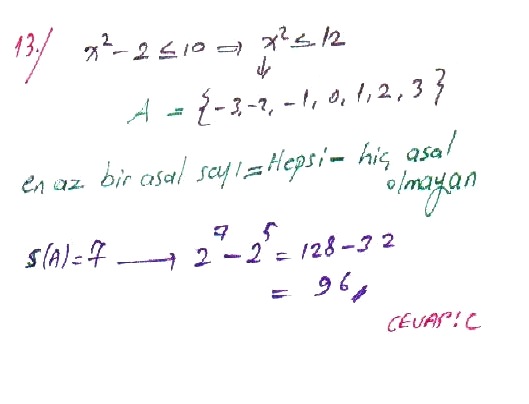 13./ x² - 2 ≤ 10 ⇒ x² ≤ 12
↓
A = {-3,-2,-1,0,1,2,3}
en az bir asal sayı = Hepsi - hiç asal
olmayan
s(A)=7 → 2⁷ - 2⁵ = 128 - 32
= 96,
CEVAP: C